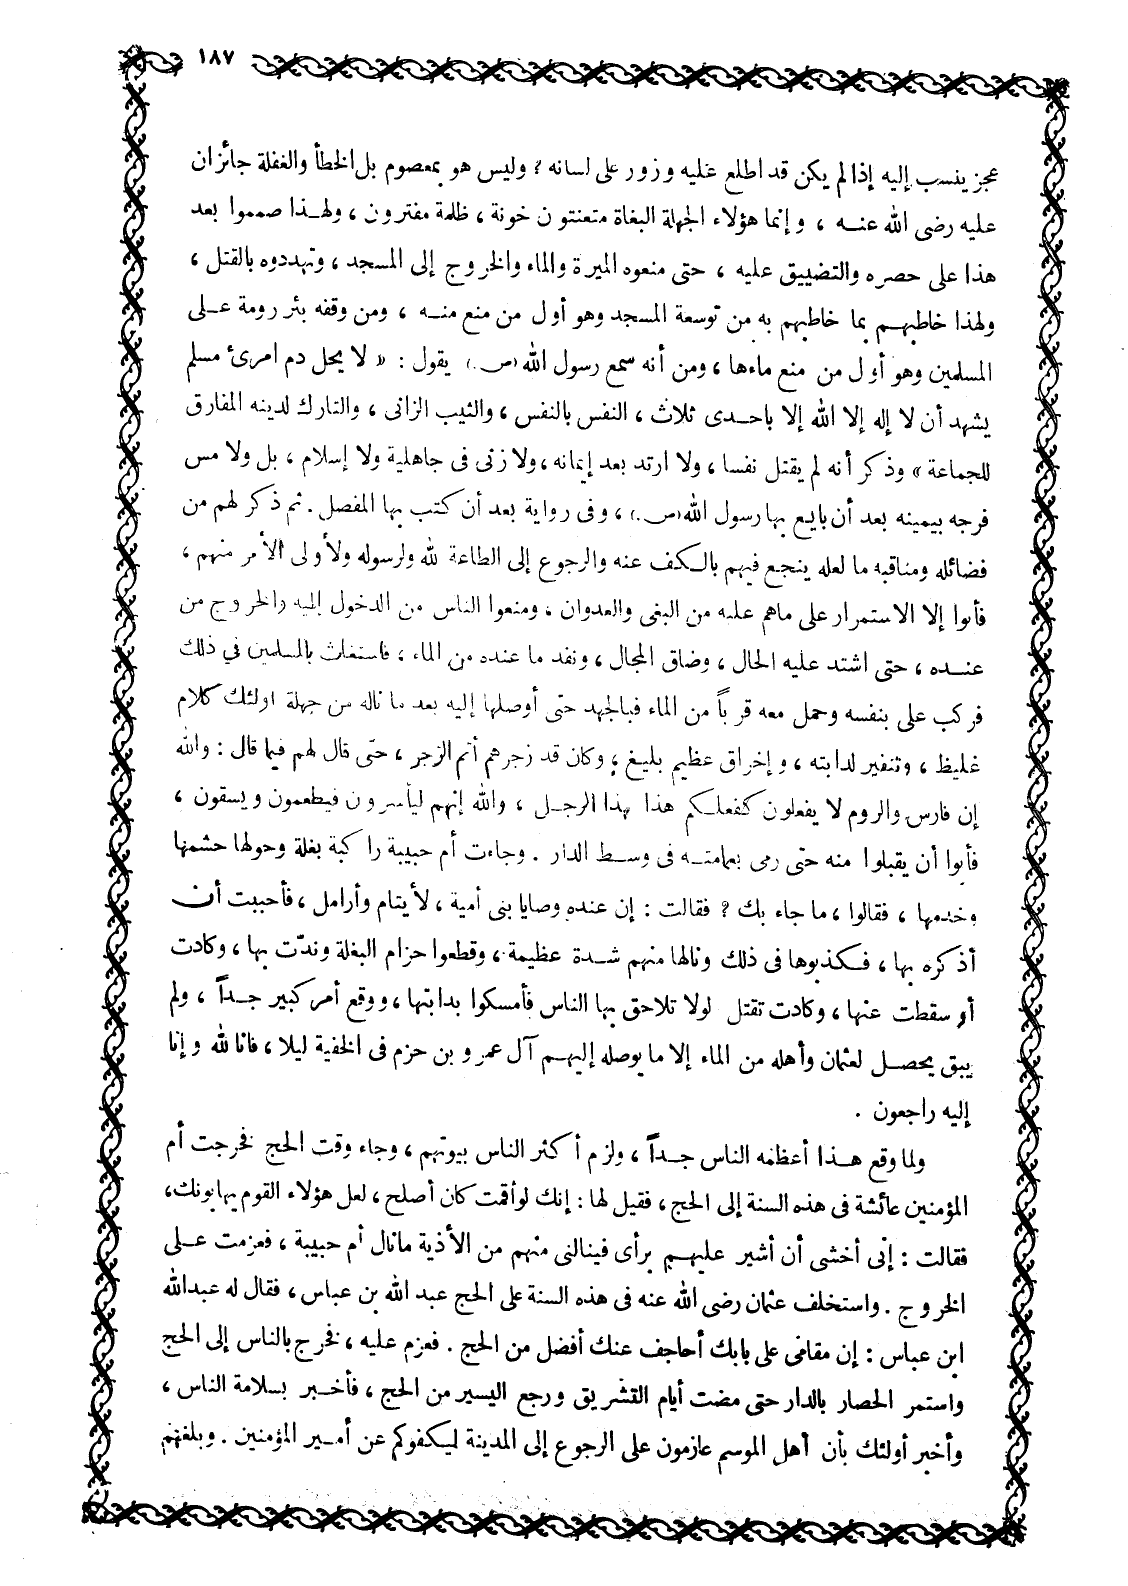 ١٨٧
عجز ينسب إليه إذا لم يكن قد اطلع عليه وزور على لسانه ؟ وليس هو بمعصوم بل الخطأ والغفلة جائزان
عليه رضى الله عنـه ، وإنما هؤلاء الجهلة البغاة متعنتون خونة ، ظلمة مفترون ، ولهـذا صمموا بعد
هذا على حصره والتضييق عليه ، حتى منعوه الميرة والماء والخروج إلى المسجد ، وتهددوه بالقتل ،
ولهذا خاطبهـم بما خاطبهم به من توسعة المسجد وهو أول من منع منـه ، ومن وقفه بئر رومة علـى
المسلمين وهو أول من منع ماءها ، ومن أنه سمع رسول الله (ص.) يقول : « لا يحل دم امرئ مسلم
يشهد أن لا إله إلا الله إلا باحـدى ثلاث ، النفس بالنفس ، والثيب الزانى ، والتارك لدينه المفارق
للجماعة » وذكر أنه لم يقتل نفسا ، ولا ارتد بعد إيمانه ، ولا زنى فى جاهلية ولا إسلام ، بل ولا مس
فرجه بيمينه بعد أن بايع بها رسول الله (ص.) ، وفى رواية بعد أن كتب بها المفصل . ثم ذكر لهم من
فضائله ومناقبه ما لعله ينجع فيهم بالـكف عنه والرجوع إلى الطاعة لله ولرسوله ولأولى الأمر منهم ،
فأبوا إلا الاستمرار على ماهم عليه من البغى والعدوان ، ومنعوا الناس من الدخول إليه والخروج من
عنـده ، حتى اشتد عليه الحال ، وضاق المجال ، ونفد ما عنده من الماء ، فاستغاث بالمسلمين في ذلك
فركب على بنفسه وحمل معه قرباً من الماء فبالجهد حتى أوصلها إليه بعد ما ناله من جهلة اولئك كلام
غليظ ، وتنفير لدابته ، وإخراق عظيم بليغ ، وكان قد زجرهم أتم الزجر ، حتى قال لهم فيما قال : والله
إن فارس والروم لا يفعلون كفعلـكم هذا بهذا الرجـل ، والله إنهم ليأسرون فيطعمون ويسقون ،
فأبوا أن يقبلوا منه حتى رمى بعمامتـه فى وسـط الدار . وجاءت أم حبيبة راكبة بغلة وحولها حشمها
وخدمها ، فقالوا ، ما جاء بك ؟ فقالت : إن عنده وصايا بنى أمية ، لأيتام وأرامل ، فأحببت أن
أذكره بها ، فـكذبوها فى ذلك ونالها منهم شـدة عظيمة ، وقطعوا حزام البغلة وندّت بها ، وكادت
أو سقطت عنها ، وكادت تقتل لولا تلاحق بها الناس فأمسكوا بدابتها ، ووقع أمر كبير جـداً ، ولم
يبق يحصـل لعثمان وأهله من الماء إلا ما يوصله إليهـم آل عمرو بن حزم فى الخفية ليلا ، فانا لله وإنا
إليه راجعون .
ولما وقع هـذا أعظمه الناس جـداً ، ولزم أكثر الناس بيوتهم ، وجاء وقت الحج فخرجت أم
المؤمنين عائشة فى هذه السنة إلى الحج ، فقيل لها : إنك لو أقمت كان أصلح ، لعل هؤلاء القوم يهابونك ،
فقالت : إنى أخشى أن أشير عليهـم برأى فينالنى منهم من الأذية ما نال أم حبيبة ، فعزمت علـى
الخروج . واستخلف عثمان رضى الله عنه فى هذه السنة على الحج عبد الله بن عباس ، فقال له عبدالله
ابن عباس : إن مقامى على بابك أحاجف عنك أفضل من الحج . فعزم عليه ، فخرج بالناس إلى الحج
واستمر الحصار بالدار حتى مضت أيام التشريق ورجع اليسير من الحج ، فأخـبر بسلامة الناس ،
وأخبر أولئك بأن أهل الموسم عازمون على الرجوع إلى المدينة ليـكفوكم عن أمـير المؤمنين . وبلغهم